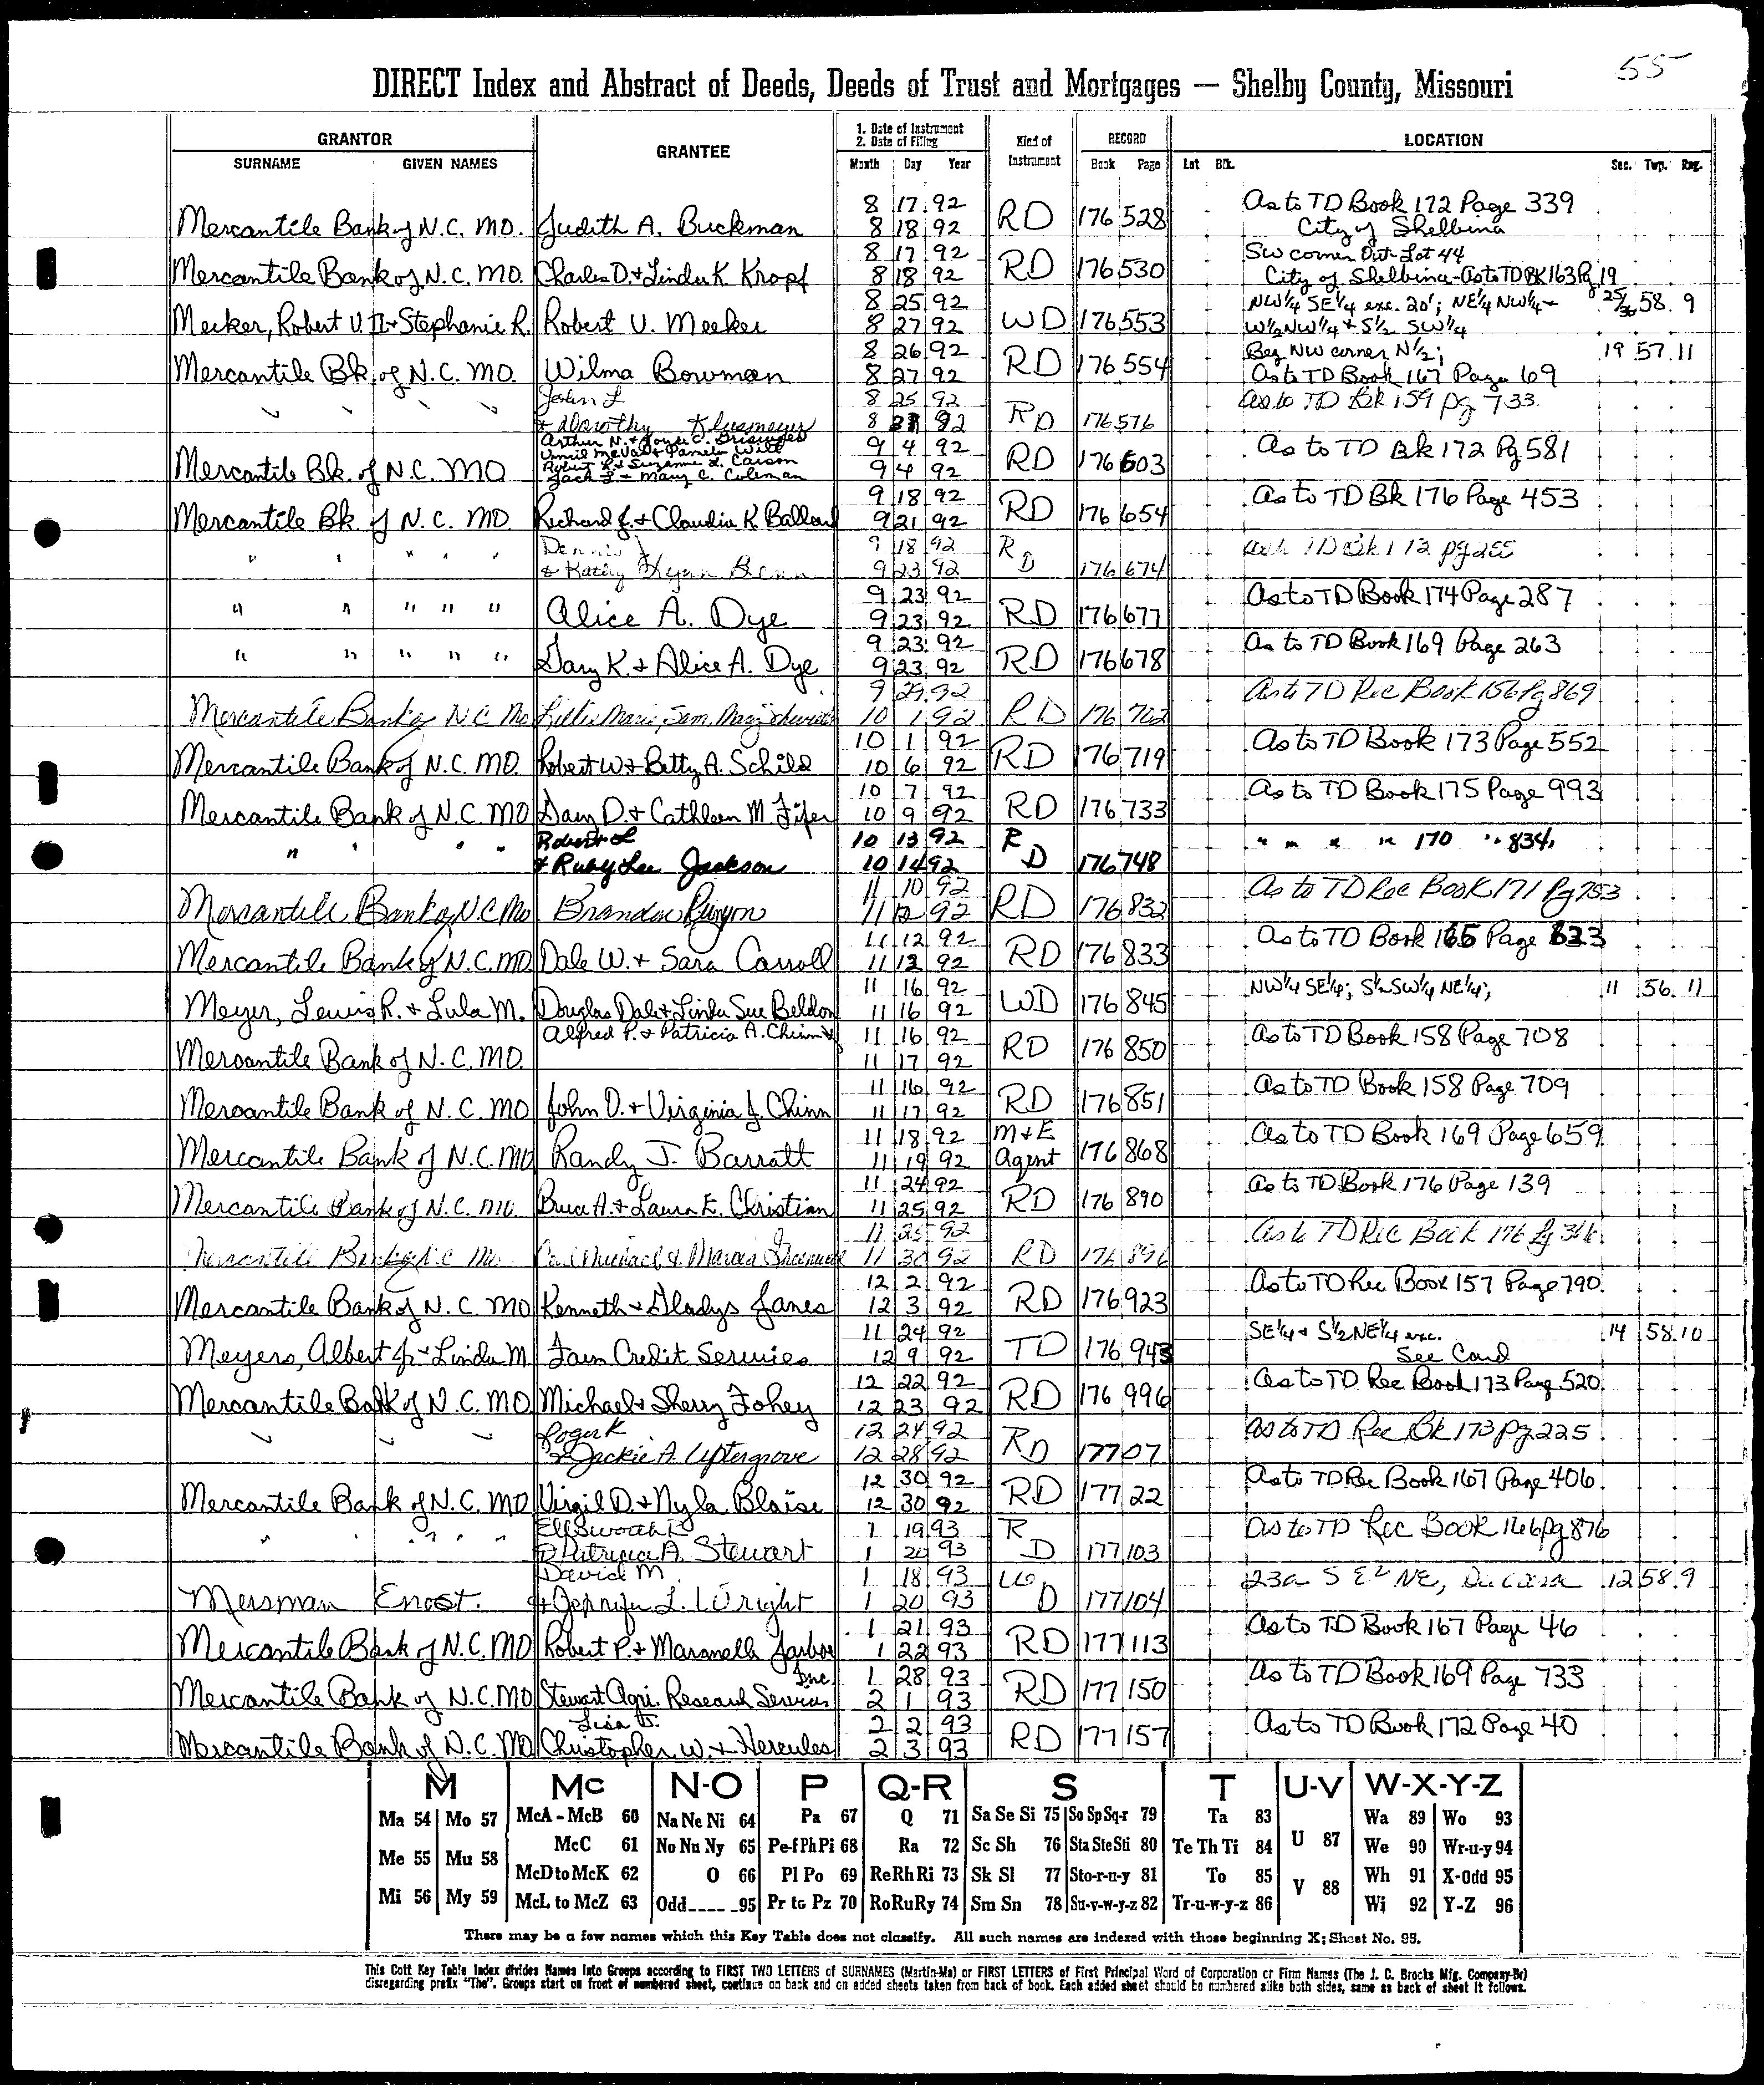 55
DIRECT Index and Abstract of Deeds, Deeds of Trust and Mortgages — Shelby County, Missouri
GRANTOR GRANTEE 1. Date of Instrument 2. Date of Filing Kind of Instrument RECORD LOCATION
SURNAME GIVEN NAMES Month Day Year Book Page Lot Blk. Sec. Twp. Rng.
8 17 92 As to TD Book 172 Page 339
Mercantile Bank of N.C. MO. Judith A. Buckman 8 18 92 RD 176 528 City of Shelbina
8 17 92 SW corner Out-Lot 44
Mercantile Bank of N.C. MO. Charles D. + Linda K. Kropf 8 18 92 RD 176 530 City of Shelbina - As to TD BK 163 Pg 19
8 25 92 NW¼ SE¼ exc. 20'; NE¼ NW¼ + 25/36 58 9
Meeker, Robert V. II + Stephanie R. Robert V. Meeker 8 27 92 WD 176 553 W½ NW¼ + S½ SW¼
8 26 92 Beg NW corner N½; 19 57 11
Mercantile Bk. of N.C. MO. Wilma Bowman 8 27 92 RD 176 554 As to TD Book 167 Page 69
John L 8 25 92 As to TD Bk 159 pg 733
+ Dorothy Klusmeyer 8 31 92 RD 176 576
Arthur N. + Joyce C.
+ Pamela Witt 9 4 92 As to TD Bk 172 Pg 581
Mercantile Bk. of N.C. MO Robert L + Suzanne L. Carson 9 4 92 RD 176 603
Jack F + Mary C. Coleman
9 18 92 As to TD Bk 176 Page 453
Mercantile Bk. of N.C. MO Richard J. + Claudia K Ballou 9 21 92 RD 176 654
" " " " " Dennis J 9 18 92 RD pg 255
+ Kathy Lynn Benn 9 23 92 176 674
9 23 92 As to TD Book 174 Page 287
" " " " " Alice A. Dye 9 23 92 RD 176 677
9 23 92 As to TD Book 169 Page 263
" " " " " Gary K. + Alice A. Dye 9 23 92 RD 176 678
9 29 92 As to TD Rec Book 156 Pg 869
Mercantile Bank of N C Mo 10 1 92 RD 176 702
10 1 92 As to TD Book 173 Page 552
Mercantile Bank of N.C. MO. Robert W + Betty A. Schild 10 6 92 RD 176 719
10 7 92 As to TD Book 175 Page 993
Mercantile Bank of N.C. MO Gary D. + Cathleen M. Fifer 10 9 92 RD 176 733
" " " Robert L 10 13 92 RD " " " " 170 " 834
+ Ruby Lee Jackson 10 14 92 176 748
11 10 92 As to TD Rec Book 171 Pg 753
Mercantile Bank of N.C. Mo Brandon Runyon 11 12 92 RD 176 832
11 12 92 As to TD Book 165 Page 823
Mercantile Bank of N.C. MO Dale W. + Sara Carroll 11 13 92 RD 176 833
11 16 92 NW¼ SE¼; S½ SW¼ NE¼; 11 56 11
Meyer, Lewis R. + Lula M. Douglas Dale + Linda Sue Beldon 11 16 92 WD 176 845
Alfred P. + Patricia A. Chinn 11 16 92 As to TD Book 158 Page 708
Mercantile Bank of N.C. MO. 11 17 92 RD 176 850
11 16 92 As to TD Book 158 Page 709
Mercantile Bank of N.C. MO John D. + Virginia J. Chinn 11 17 92 RD 176 851
11 18 92 M+E As to TD Book 169 Page 659
Mercantile Bank of N.C. MO Randy J. Barratt 11 19 92 Agent 176 868
11 24 92 As to TD Book 176 Page 139
Mercantile Bank of N.C. MO. Bruce A. + Laura E. Christian 11 25 92 RD 176 890
11 25 92 As to TD Rec Book 176 Pg 366
Mercantile Bank of N.C. Mo. Michael & Marcia 11 30 92 RD 176 896
12 2 92 As to TD Rec Book 157 Page 790
Mercantile Bank of N.C. MO Kenneth + Gladys Janes 12 3 92 RD 176 923
11 24 92 SE¼ + S½ NE¼ exc. 14 58 10
Meyers, Albert Jr + Linda M Farm Credit Services 12 9 92 TD 176 943 See Card
12 22 92 As to TD Rec Book 173 Page 520
Mercantile Bank of N.C. MO Michael + Sherry Fohey 12 23 92 RD 176 996
Roger K 12 24 92 As to TD Rec Bk 173 pg 225
+ Jackie A. Uptergrove 12 28 92 RD 177 07
12 30 92 As to TD Rec Book 167 Page 406
Mercantile Bank of N.C. MO Virgil D. + Nyla Blaise 12 30 92 RD 177 22
" " " " " Ellsworth R 1 19 93 RD As to TD Rec Book 166 pg 876
+ Patricia A. Stewart 1 20 93 177 103
David M 1 18 93 WD 23a S E² NE, 12 58 9
Messman Enos t. + Jennifer L. Wright 1 20 93 177 104
1 21 93 As to TD Book 167 Page 46
Mercantile Bank of N.C. MO Robert P. + Maranella Jarboe 1 22 93 RD 177 113
Inc. 1 28 93 As to TD Book 169 Page 733
Mercantile Bank of N.C. MO Stewart Agri. Research Services 2 1 93 RD 177 150
Lisa J. 2 2 93 As to TD Book 172 Page 40
Mercantile Bank of N.C. MO Christopher W. + Hercules 2 3 93 RD 177 157
M Mc N-O P Q-R S T U-V W-X-Y-Z
Ma 54 Mo 57 McA - McB 60 Na Ne Ni 64 Pa 67 Q 71 Sa Se Si 75 So Sp Sq-r 79 Ta 83 U 87 Wa 89 Wo 93
Me 55 Mu 58 McC 61 No Nu Ny 65 Pe-f Ph Pi 68 Ra 72 Sc Sh 76 Sta Ste Sti 80 Te Th Ti 84 We 90 Wr-u-y 94
McD to McK 62 O 66 Pl Po 69 Re Rh Ri 73 Sk Sl 77 Sto-r-u-y 81 To 85 V 88 Wh 91 X-Odd 95
Mi 56 My 59 McL to McZ 63 Odd---- -95 Pr to Pz 70 Ro Ru Ry 74 Sm Sn 78 Su-v-w-y-z 82 Tr-u-w-y-z 86 Wi 92 Y-Z 96
There may be a few names which this Key Table does not classify. All such names are indexed with those beginning X; Sheet No. 95.
This Cott Key Table Index divides Names Into Groups according to FIRST TWO LETTERS of SURNAMES (Martin-Ma) or FIRST LETTERS of First Principal Word of Corporation or Firm Names (The J. C. Brocks Mfg. Company-Br)
disregarding prefix "The". Groups start on front of numbered sheet, continue on back and on added sheets taken from back of book. Each added sheet should be numbered alike both sides, same as back of sheet it follows.